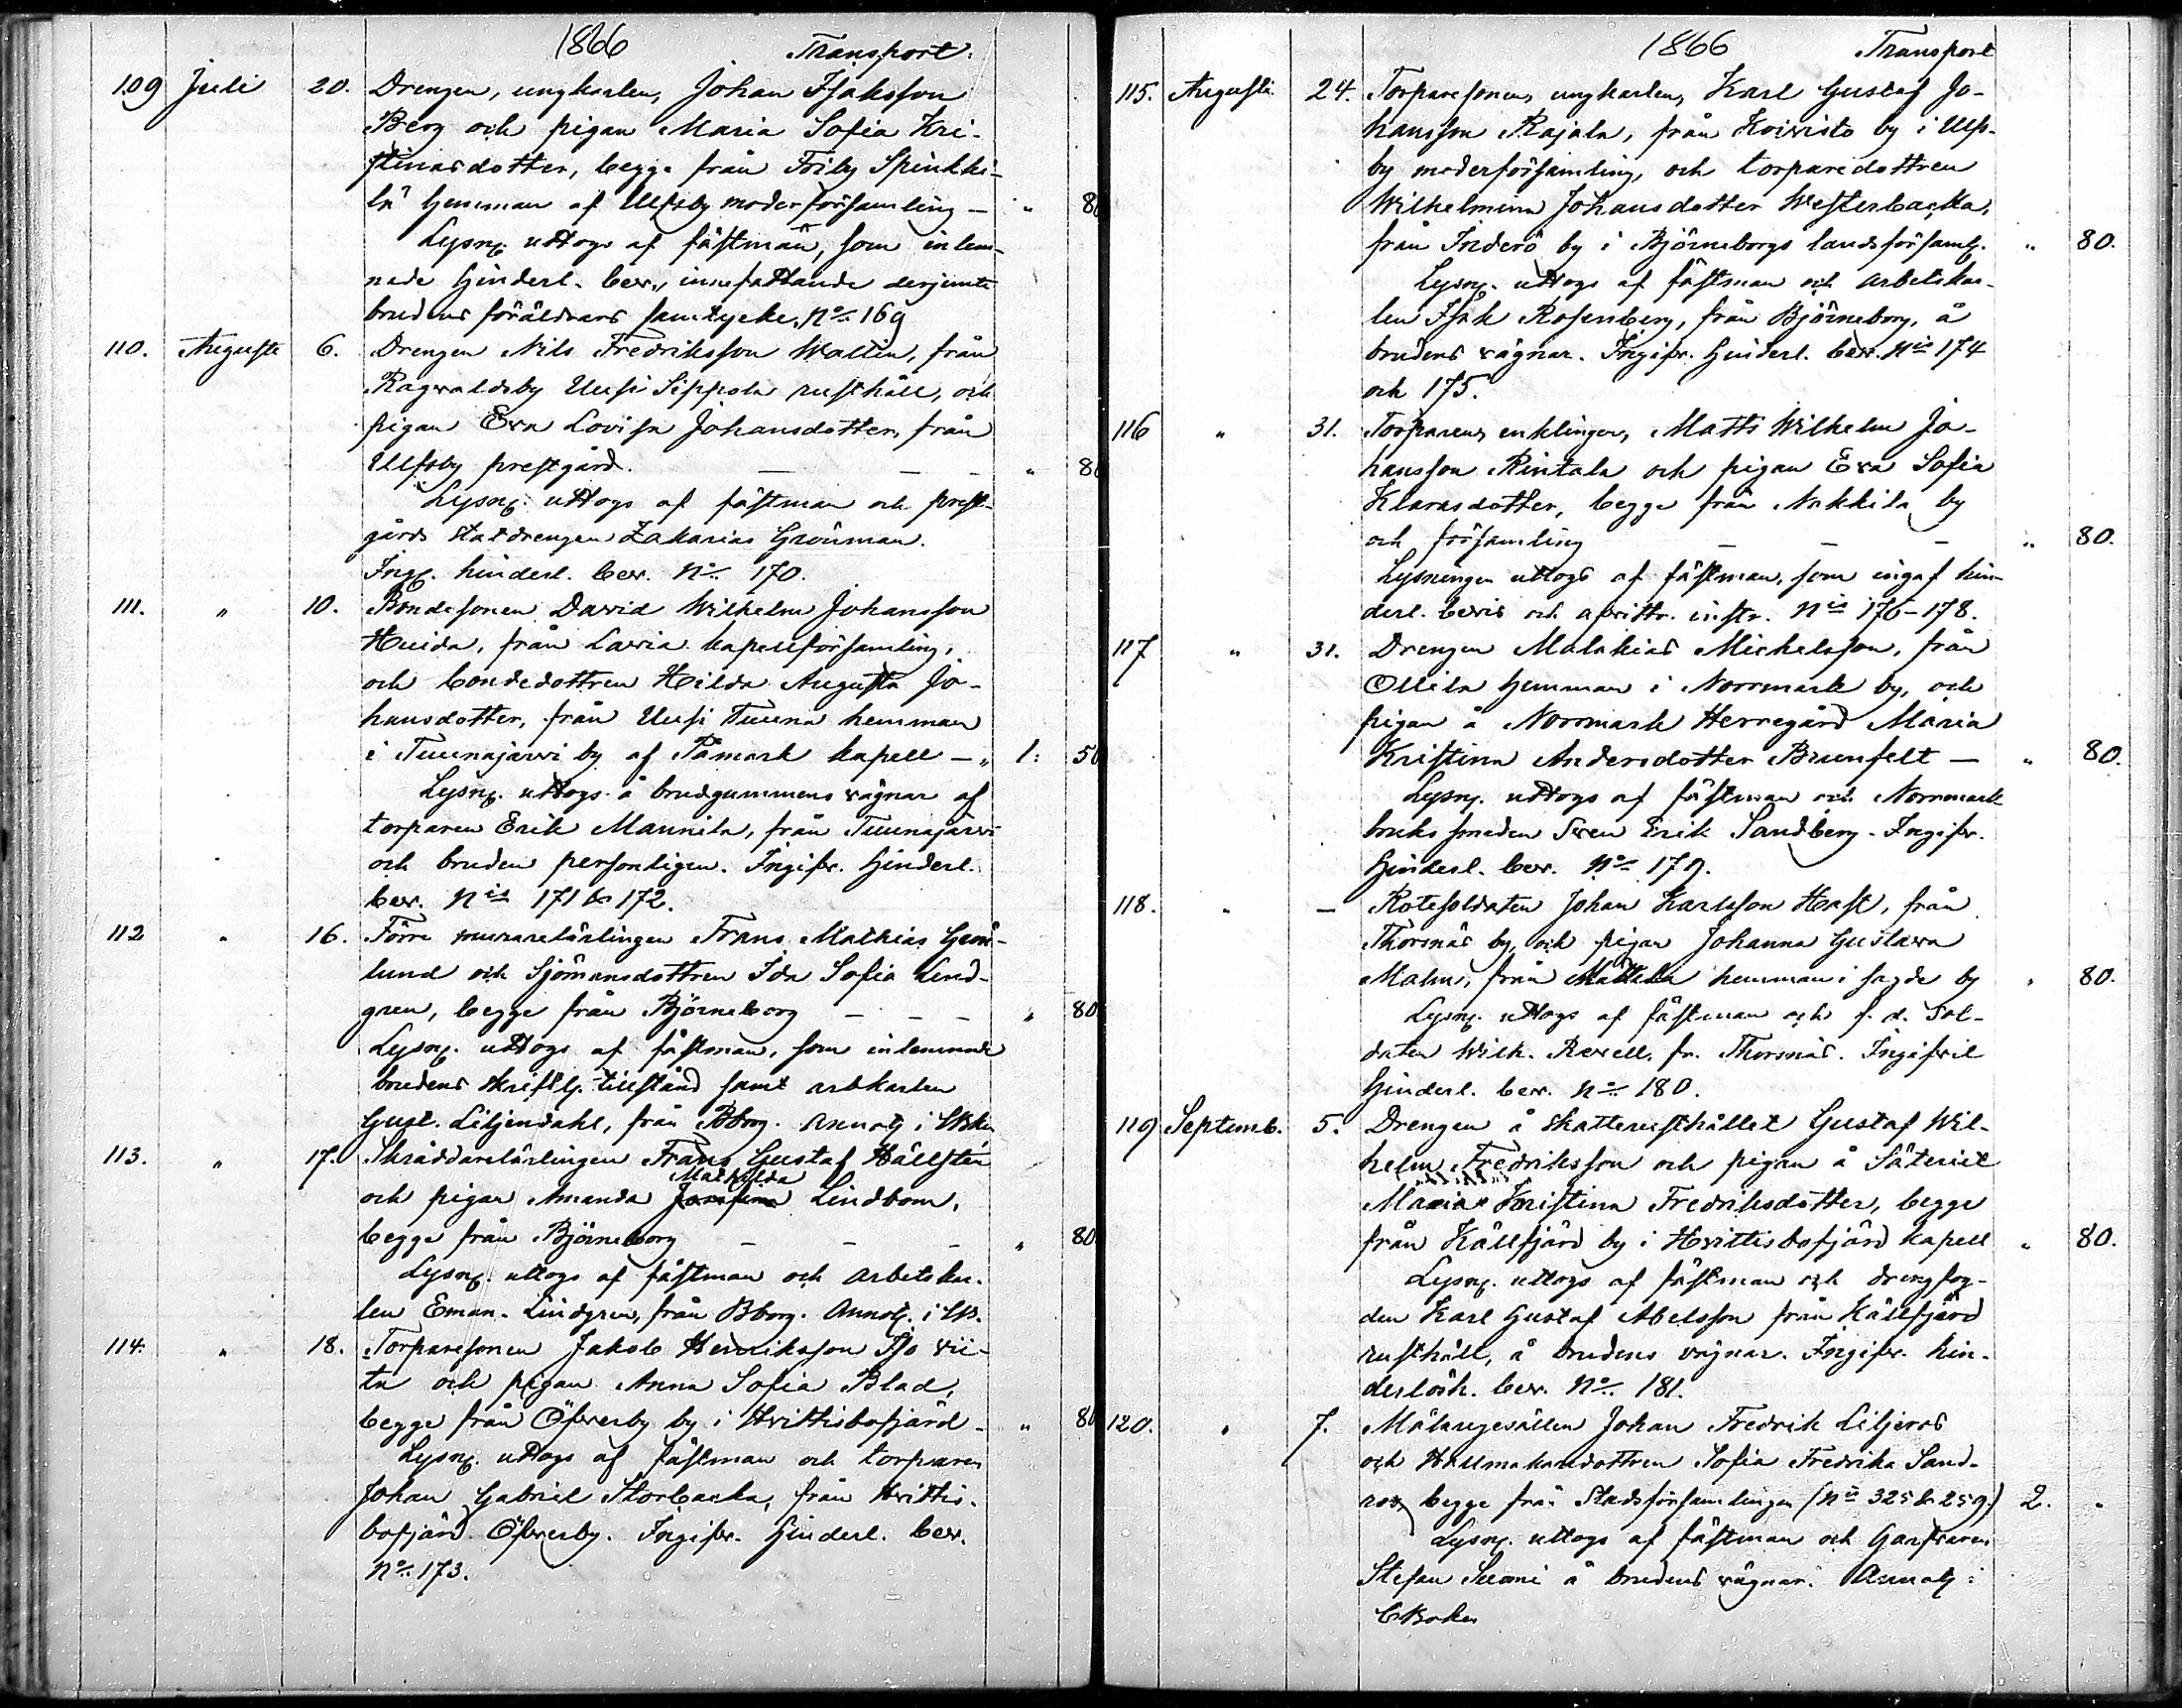 1866 Transport.
109 Juli 20. Drengen, ungkarlen, Johan Isaksson
Berg och pigan Maria Sofia Kri-
stinasdotter, begge från Friby Spinkki-
lä hemman af Ulfsby moderförsamling — " 80
Lysng. uttogs af fästman, som inlem-
nade hinderl. bev., innefattande derjemte
brudens föräldrars samtycke, No 169
110. Augusti 6. Drengen Nils Fredriksson Wallin, från
Ragvaldsby Uusi Sippola rusthåll, och
pigan Eva Lovisa Johansdotter, från
Ulfsby prestgård. — — — " 80
Lysng. uttogs af fästman och prest-
gårds statdrengen Zakarias Grönman.
Ingf. hinderl. bev. No 170.
111. " 10. Bondesonen David Wilhelm Johansson
Huida, från Lavia kapellförsamling,
och bondedottren Hilda Augusta Jo-
hansdotter, från Uusi Tuuna hemman
i Tuunajärvi by af Påmark kapell — " 1: 50
Lysng. uttogs å brudgummens vägnar af
torparen Erik Mannila, från Tuunajärvi
och bruden personligen. Ingifv. hinderl.
bev. Nis 171 & 172.
112 " 16. Förre murarelärlingen Frans Mathias Grön-
lund och Sjömansdottren Ida Sofia Lind-
gren, begge från Björneborg — — — " 80
Lysng. uttogs af fästman, som inlemnade
brudens skriftlg. tillstånd samt arbkarlen
Gust. Liljendahl, från Bborg. Annotg i
113. " 17. Skräddarelärlingen Frans Gustaf Hällsten
Mathilda
och pigan Amanda Josefina Lindbom,
begge från Björneborg — — — " 80
Lysng. uttogs af fästman och arbetskar-
len Eman. Lindgren, från Bborg. Annotg. i
114. " 18. Torparesonen Jakob Henriksson Iso vii-
ta och pigan Anna Sofia Blad,
begge från Öfverby by i Hvittisbofjärd — " 80
Lysng. uttogs af fästman och torparen
Johan Gabriel Storbacka, från Hvittis-
bofjärd Öfverby. Ingifv. hinderl. bev.
No 173.
1866 Transport
115. Augusti 24. Torparesonen, ungkarlen, Karl Gustaf Jo-
hansson Rajala, från Koivisto by i Ulfs-
by moderförsamling, och torparedottren
Wilhelmina Johansdotter Westerbacka,
från Inderö by i Björneborgs landsförsamlg. " 80.
Lysng. uttogs af fästman och arbetskar-
len Isak Rosenberg, från Björneborg, å
brudens vägnar. Ingifv. hinderl. bev. Nis 174
och 175.
116 " 31. Torparen, enklingen, Matts Wilhelm Jo-
hansson Rintala och pigan Eva Sofia
Klarasdotter, begge från Nakkila by
och församling — — — " 80.
Lysningen uttogs af fästman, som ingaf hin-
derl. bevis och afvittr. instr. Nis 176–178.
117 " 31. Drengen Malakias Mickelsson, från
Ollila hemman i Norrmark by, och
pigan å Norrmark Herregård Maria
Kristina Andersdotter Brunfelt — " 80.
Lysng. uttogs af fästman och Norrmark
bruks smeden Sven Erik Sandberg. Ingifv.
hinderl. bev. No 179.
118. " — Rotesoldaten Johan Karlsson Hast, från
Thorsnäs by, och pigan Johanna Gustava
Malm, från Mattila hemman i sagde by " 80.
Lysng. uttogs af fästman och f. d. Sol-
daten Wilh. Revell, fr. Thorsnäs. Ingifvit
hinderl. bev. No 180.
119 Septemb. 5. Drengen å skatterusthållet Gustaf Wil-
helm Fredriksson och pigan å Säteriet
Maria Kristina Fredriksdotter, begge
från Källfjärd by i Hvittisbofjärd kapell " 80.
Lysng. uttogs af fästman och drengfog-
den Karl Gustaf Abelsson från Källfjärd
rusthåll, å brudens vägnar. Ingifv. hin-
derlösh. bev. No 181.
120. " 7. Målaregesällen Johan Fredrik Liljeros
och Hattmakaredottren Sofia Fredrika Sand-
ros, begge från Stadsförsamlingen (Nis 325 & 259.) 2. "
Lysng. uttogs af fästman och Garfvaren
Stefan Suomi å brudens vägnar. Annotg i